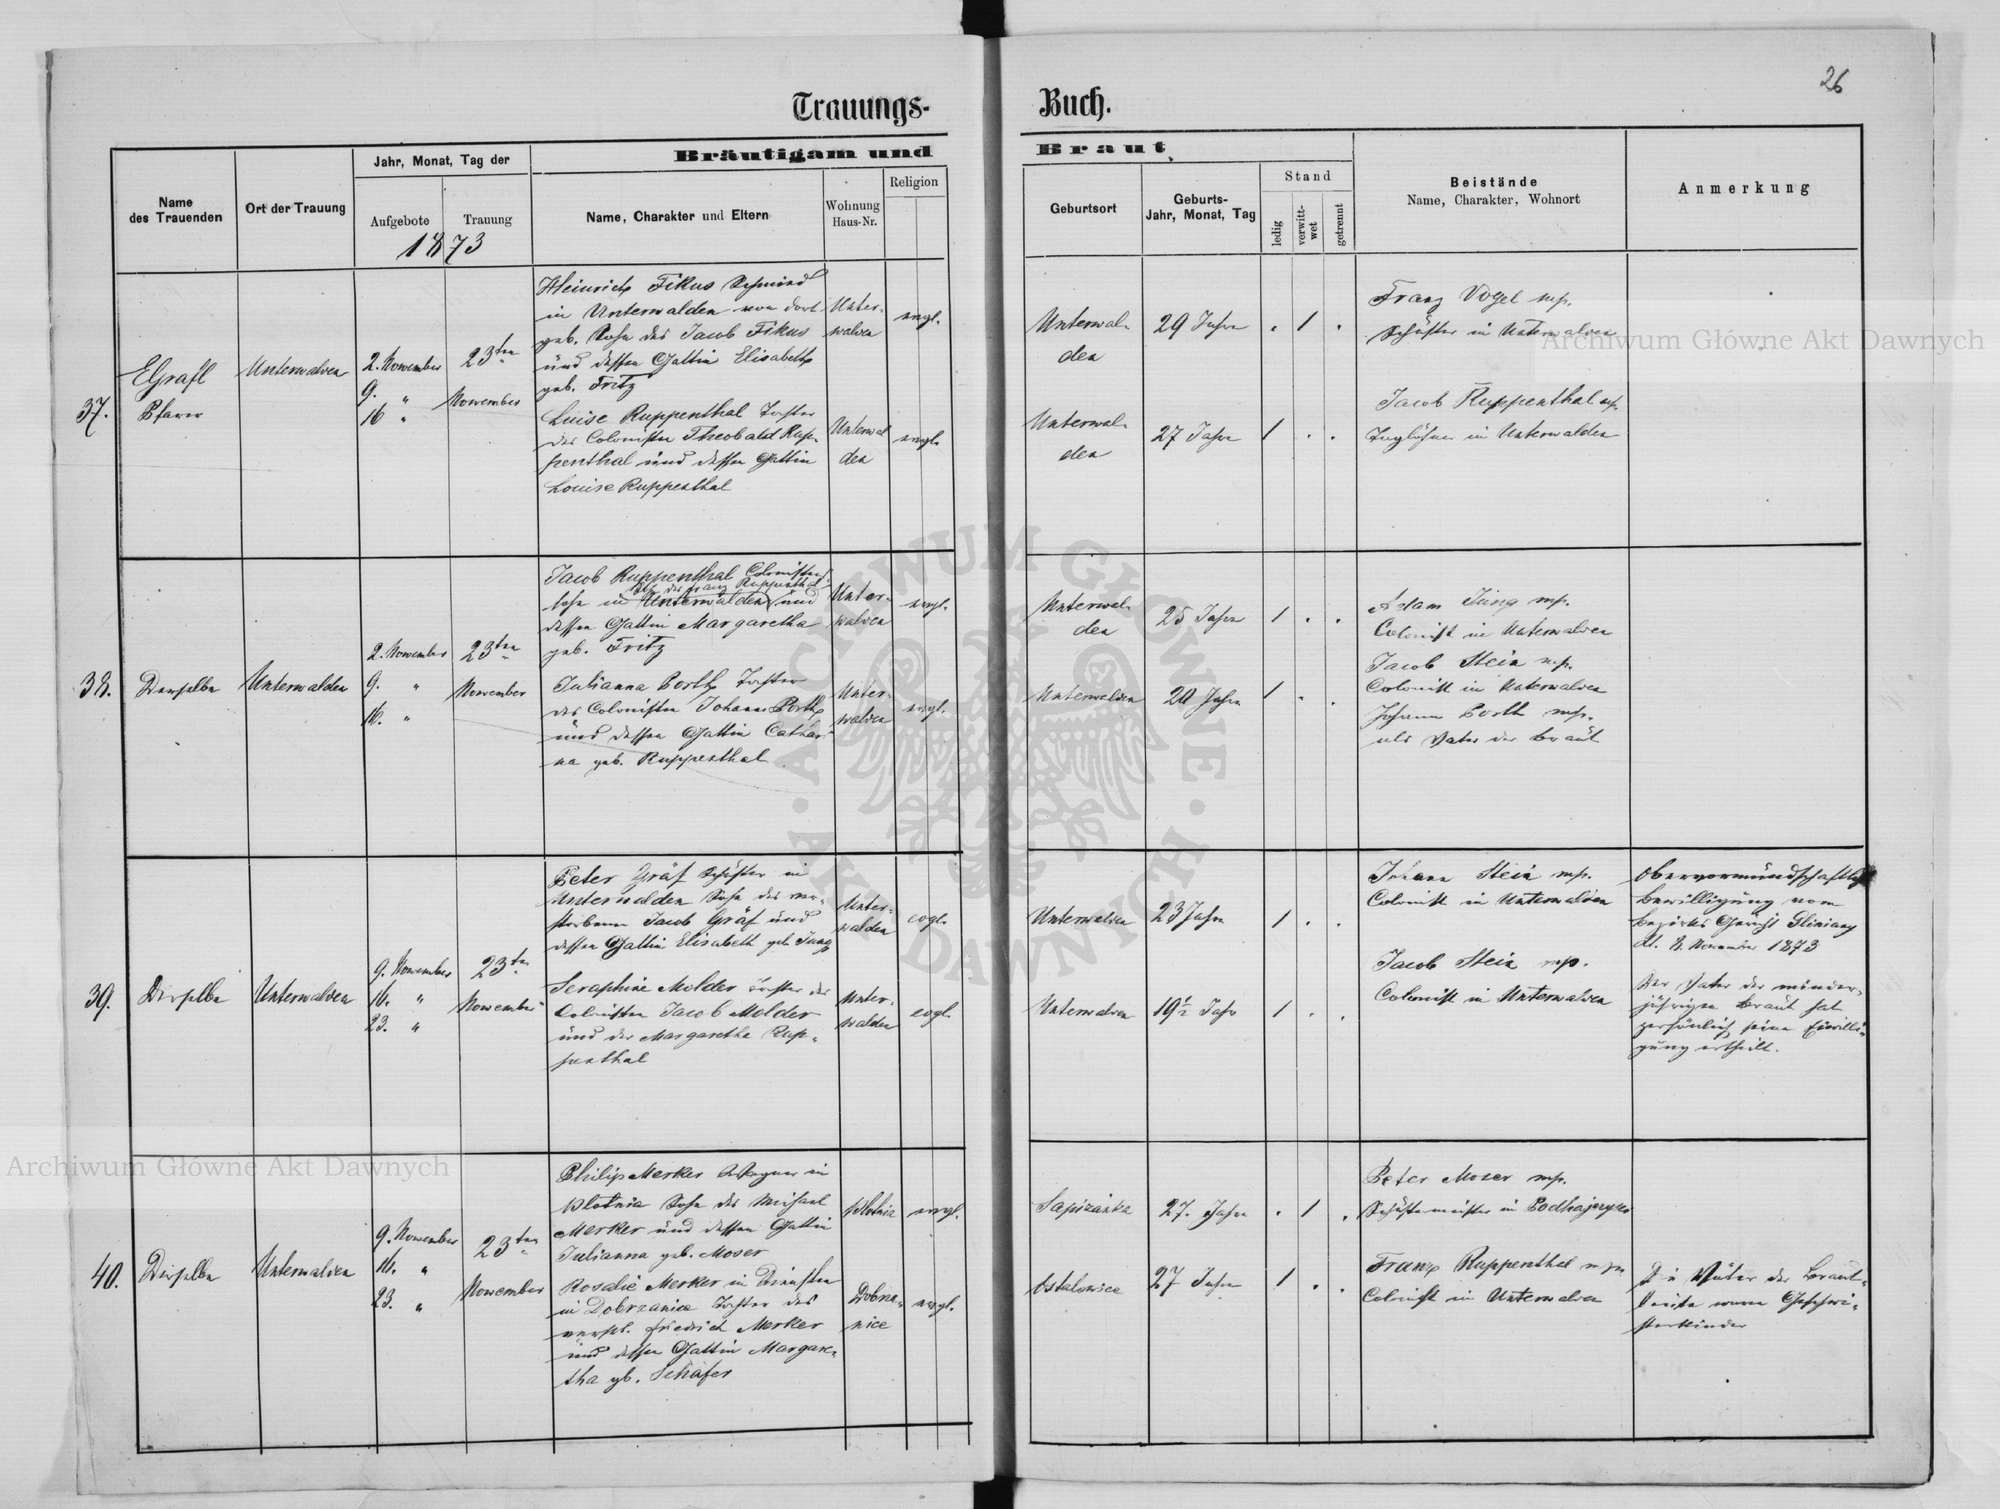 26
Trauungs-
Buch.
Bräutigam und
Braut
Name
des Trauenden
Ort der Trauung
Jahr, Monat, Tag der
Aufgebote
Trauung
1873
Name, Charakter und Eltern
Wohnung
Haus-Nr.
Religion
Geburtsort
Geburts-
Jahr, Monat, Tag
Stand
ledig
verwitt-
wet
getrennt
Beistände
Name, Charakter, Wohnort
Anmerkung
37.
EGrafl
Pfarrer
Unterwalden
2. November
9. "
16 "
23ten
November
Heinrich Fikus Schmied
in Unterwalden von dort
geb. Sohn des Jacob Fikus
und dessen Gattin Elisabeth
geb. Fritz
Unter-
walden
evgl.
Luise Ruppenthal Tochter
des Colonisten Theobald Rup-
penthal und dessen Gattin
Louise Ruppenthal
Unterwal
den
evgl.
Unterwal-
den
29 Jahre
. 1 .
Unterwal-
den
27 Jahre
1 . .
Franz Vogel mp.
Schuster in Unterwalden
Jacob Ruppenthal mp.
Taglöhner in Unterwalden
38.
Derselbe
Unterwalden
2. November
9. "
16. "
23ten
November
Jacob Ruppenthal Colonisten
des Franz Ruppenthal
sohn in Unterwalden und
dessen Gattin Margaretha
geb. Fritz
Unter-
walden
evgl.
Julianna Porth Tochter
des Colonisten Johann Porth
und dessen Gattin Cathari
na geb. Ruppenthal
Unter-
walden
evgl.
Unterwal-
den
25 Jahre
1 . .
Unterwalden
20 Jahre
1 . .
Adam Jung mp.
Colonist in Unterwalden
Jacob Stein mp.
Colonist in Unterwalden
Johann Porth mp.
als Vater der Braut
39.
Derselbe
Unterwalden
9. November
16. "
23. "
23ten
November
Peter Gräf Schuster in
Unterwalden Sohn des ver-
storbenen Jacob Gräf und
dessen Gattin Elisabeth geb Jung
Unter-
walden
evgl.
Seraphine Molder Tochter des
Colonisten Jacob Molder
und der Margaretha Rup-
penthal
Unter-
walden
evgl.
Unterwalden
23 Jahre
1 . .
Unterwalden
19½ Jahr
1 . .
Johann Stein mp.
Colonist in Unterwalden
Jacob Stein mp.
Colonist in Unterwalden
Obervormundschaftliche
Bewilligung vom
Bezirks Gericht Gliniany
November 1873
Der Vater der minder-
jährigen Braut hat
persönlich seine Einwilli-
gung ertheilt.
40.
Derselbe
Unterwalden
9. November
16. "
23. "
23ten
November
Philip Merker in
Sohn des Michael
Merker und dessen Gattin
Julianna geb. Moser
evgl.
Rosalie Merker in Diensten
in Dobrzanica Tochter des
verst. Friedrich Merker
und dessen Gattin Margare-
tha gb. Schäfer
Dobrza-
nice
evgl.
27. Jahre
. 1 .
Ostalowice
27 Jahre
1 . .
Peter Moser mp.
Schustermeister in
Franz Ruppenthal mp
Colonist in Unterwalden
Väter der Braut-
waren Geschwi-
sterkinder
Archiwum Główne Akt Dawnych
Archiwum Główne Akt Dawnych
ARCHIWUM GŁÓWNE · AKT DAWNYCH ·